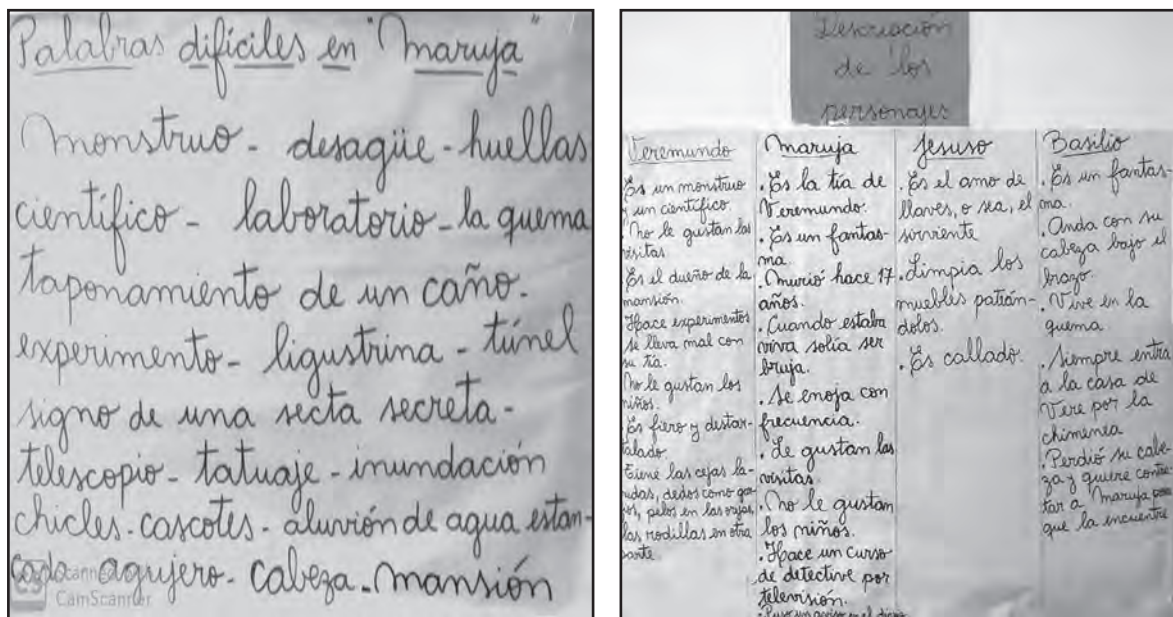 Palabras difíciles en "Maruja"
Monstruo - desagüe - huellas
científico - laboratorio - la quema
taponamiento de un caño.
experimento - ligustrina - túnel
signo de una secta secreta -
telescopio - tatuaje - inundación
chicles - cascotes - aluvión de agua estan-
cada agujero - cabeza - mansión
CamScanner
Descripción
de los
personajes
Veremundo
Es un monstruo
y un científico.
No le gustan las
visitas
Es el dueño de la
mansión.
Hace experimentos
se lleva mal con
su tía.
No le gustan los
niños.
Es fiero y destar-
talado.
Tiene las cejas
dedos como
pelos en las orejas,
las rodillas en otra
parte.
Maruja
. Es la tía de
Veremundo.
. Es un fantas-
ma.
. Murió hace 17
años.
. Cuando estaba
viva solía ser
bruja.
. Se enoja con
frecuencia.
. Le gustan las
visitas.
. No le gustan
los niños.
. Hace un curso
de detective por
televisión.
. Puso un aviso en el diario
Jesuso
. Es el amo de
llaves, o sea, el
sirviente
. Limpia los
muebles
dolos.
. Es callado.
Basilio
. Es un fantas-
ma.
. Anda con su
cabeza bajo el
brazo.
. Vive en la
quema.
. Siempre entra
a la casa de
Vere por la
chimenea
. Perdió su cabe-
za y quiere contra
tar a Maruja para
que la encuentre